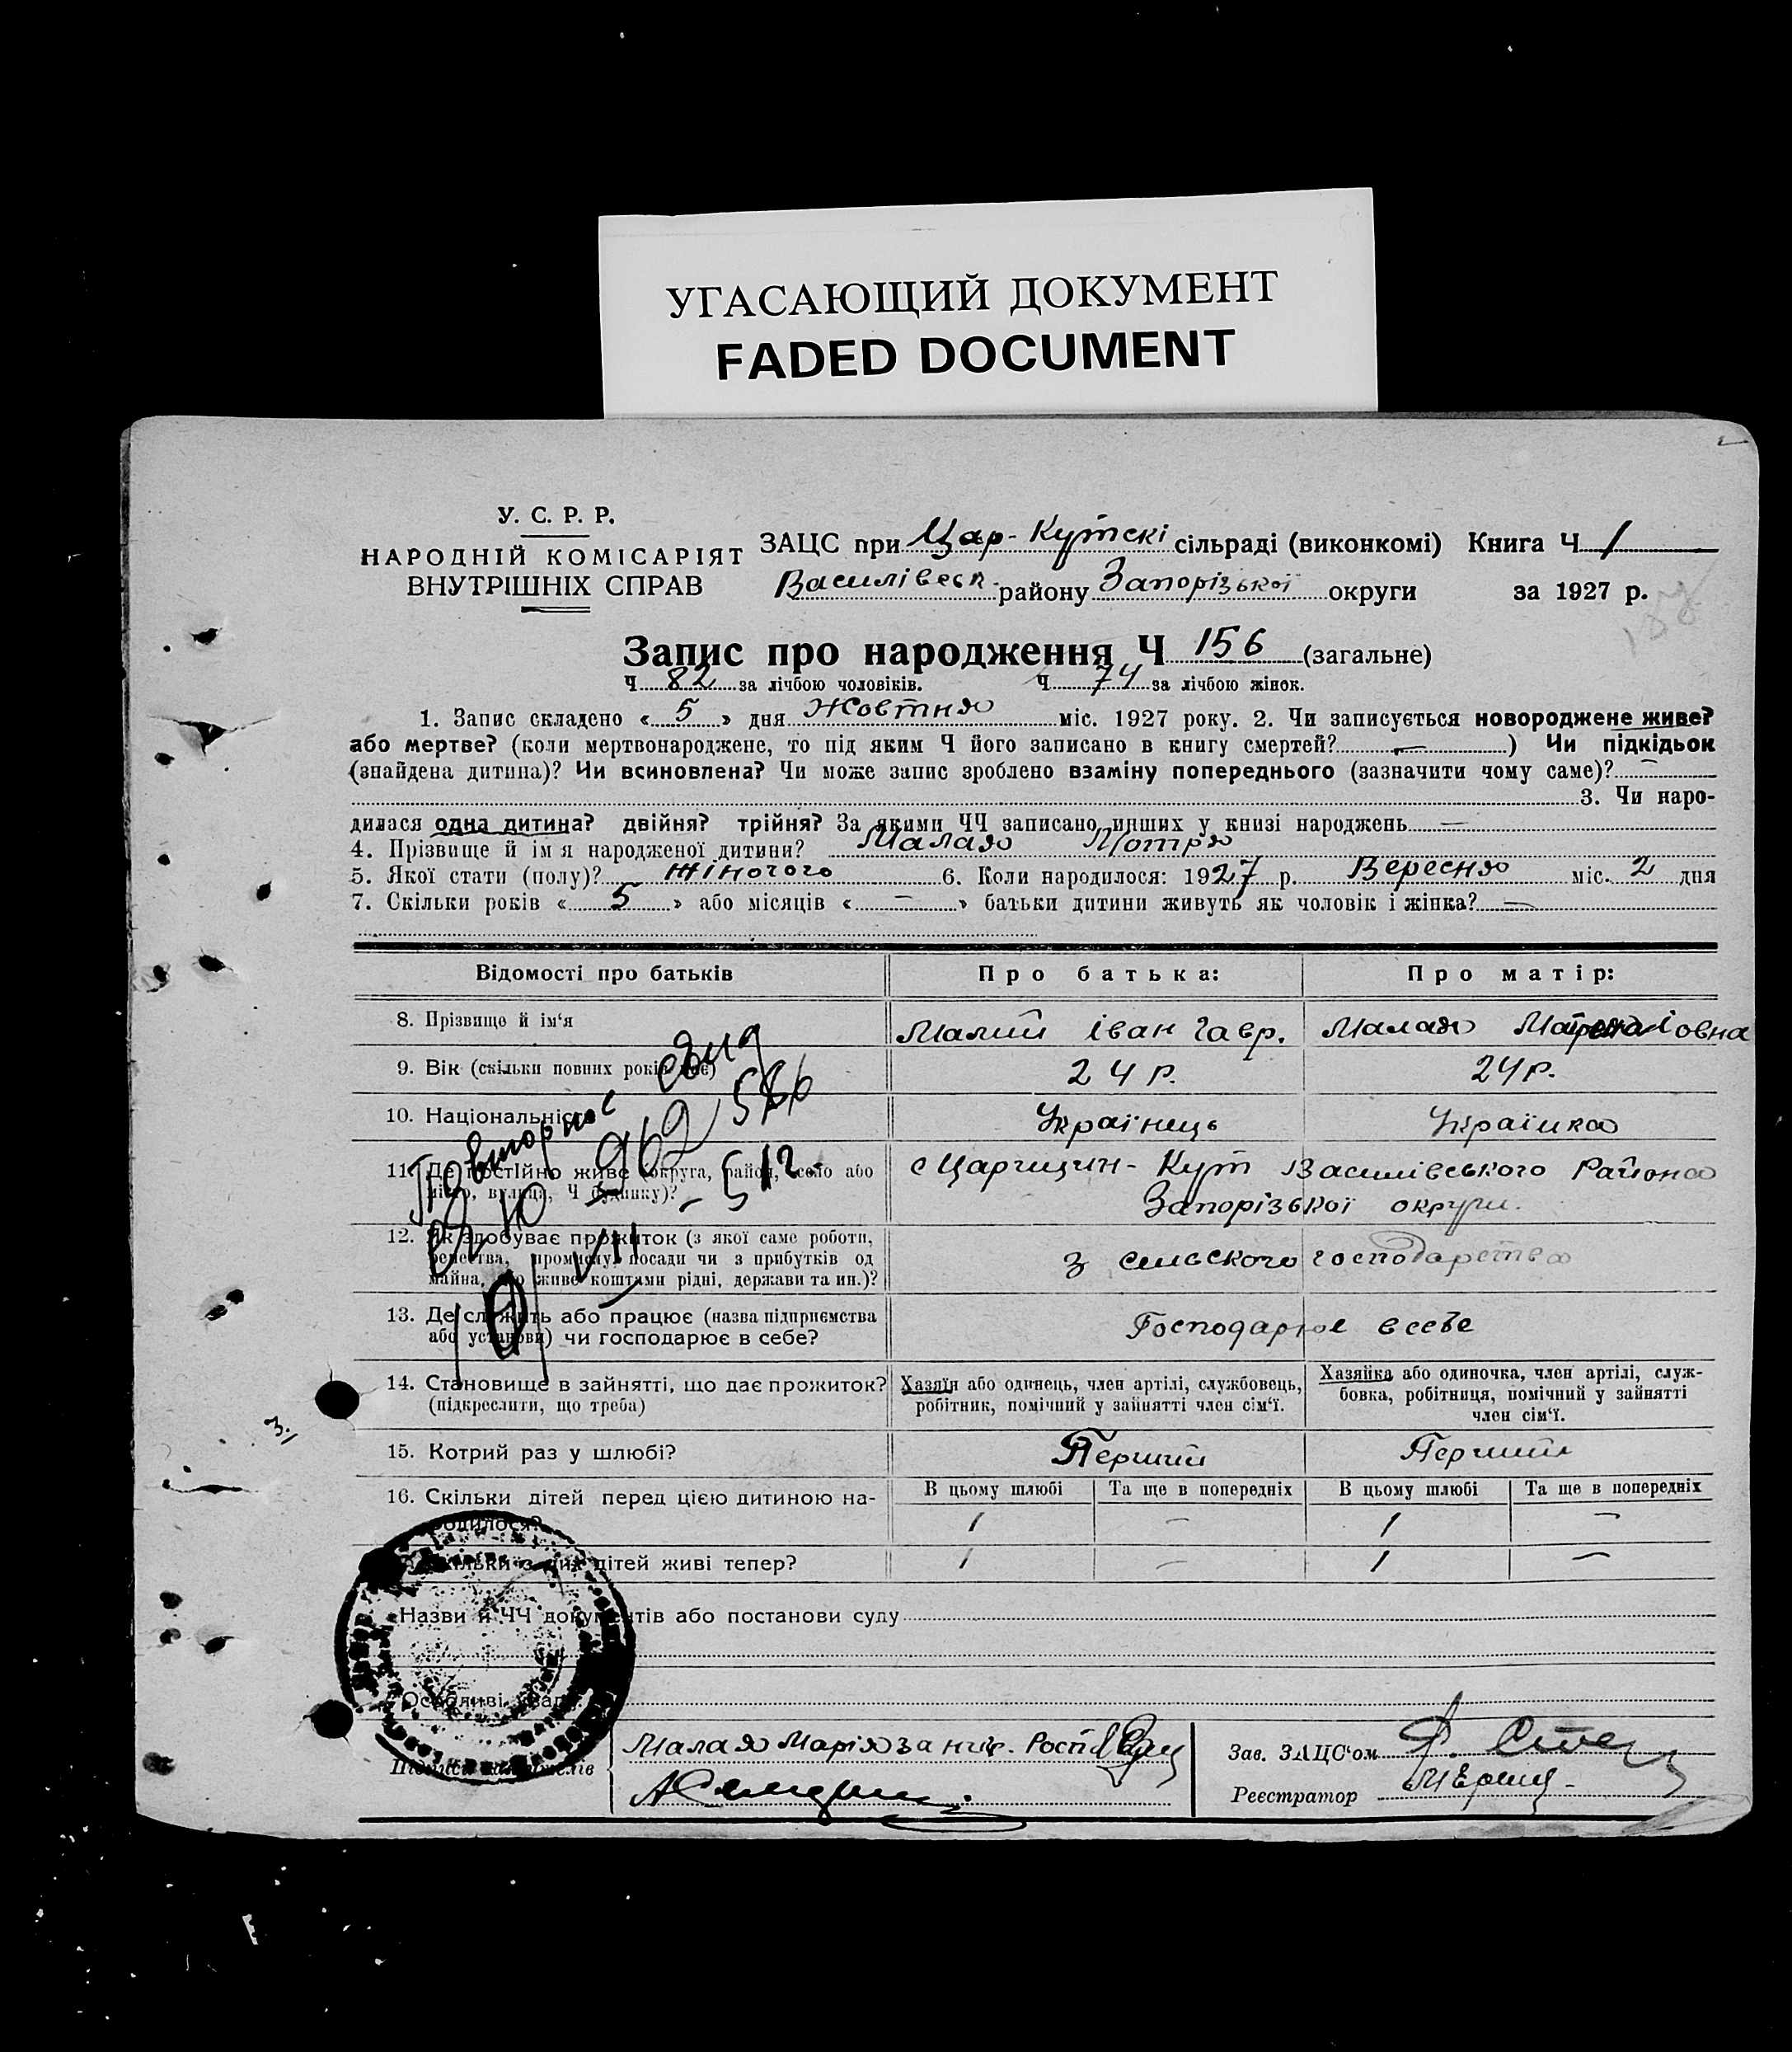 УГАСАЮЩИЙ ДОКУМЕНТ
FADED DOCUMENT
У. С. Р. Р.
НАРОДНІЙ КОМІСАРІЯТ
ВНУТРІШНІХ СПРАВ
ЗАЦС при Цар-Кутскі сільраді (виконкомі) Книга Ч 1
Василівськ. району Запорізької округи за 1927 р.
Запис про народження Ч 156 (загальне)
Ч 82 за лічбою чоловіків. Ч 74 за лічбою жінок.
1. Запис складено « 5 » дня Жовтня міс. 1927 року. 2. Чи записується новороджене живе?
або мертве? (коли мертвонароджене, то під яким Ч його записано в книгу смертей? — ) Чи підкідьок
(знайдена дитина)? Чи всиновлена? Чи може запис зроблено взаміну попереднього (зазначити чому саме)? —
3. Чи наро-
дилася одна дитина? двійня? трійня? За якими ЧЧ записано инших у книзі народжень —
4. Прізвище й ім я народженої дитини? Малая Мотря
5. Якої стати (полу)? Жіночого 6. Коли народилося: 1927 р. Вересня міс. 2 дня
7. Скільки років « 5 » або місяців « — » батьки дитини живуть як чоловік і жінка? —
Відомості про батьків Про батька: Про матір:
8. Прізвище й ім‘я Малий Іван Гавр. Малая
9. Вік (скільки повних років має) 24 р. 24 р.
10. Національність Українець Українка
11. Де постійно живе (округа, район, село або с Царицин-Кут Василівського Района
місто, вулиця, Ч будинку)? Запорізької округи.
12. Як здобуває прожиток (з якої саме роботи,
ремества, промислу, посади чи з прибутків од з сільського господарства
майна, або живе коштами рідні, держави та ин.)?
13. Де служить або працює (назва підприємства Господарює в себе
або установи) чи господарює в себе?
14. Становище в зайнятті, що дає прожиток? Хазяїн або одинець, член артілі, службовець, Хазяйка або одиночка, член артілі, служ-
(підкреслити, що треба) робітник, помічний у зайнятті член сім‘ї. бовка, робітниця, помічний у зайнятті
член сім‘ї.
15. Котрий раз у шлюбі? Перший Перший
16. Скільки дітей перед цією дитиною на- В цьому шлюбі Та ще в попередніх В цьому шлюбі Та ще в попередніх
родилося? 1 — 1 —
Скільки з них дітей живі тепер? 1 — 1 —
Назви й ЧЧ документів або постанови суду
Особливі уваги:
Малая Марія за
Зав. ЗАЦС‘ом
Реєстратор
3.